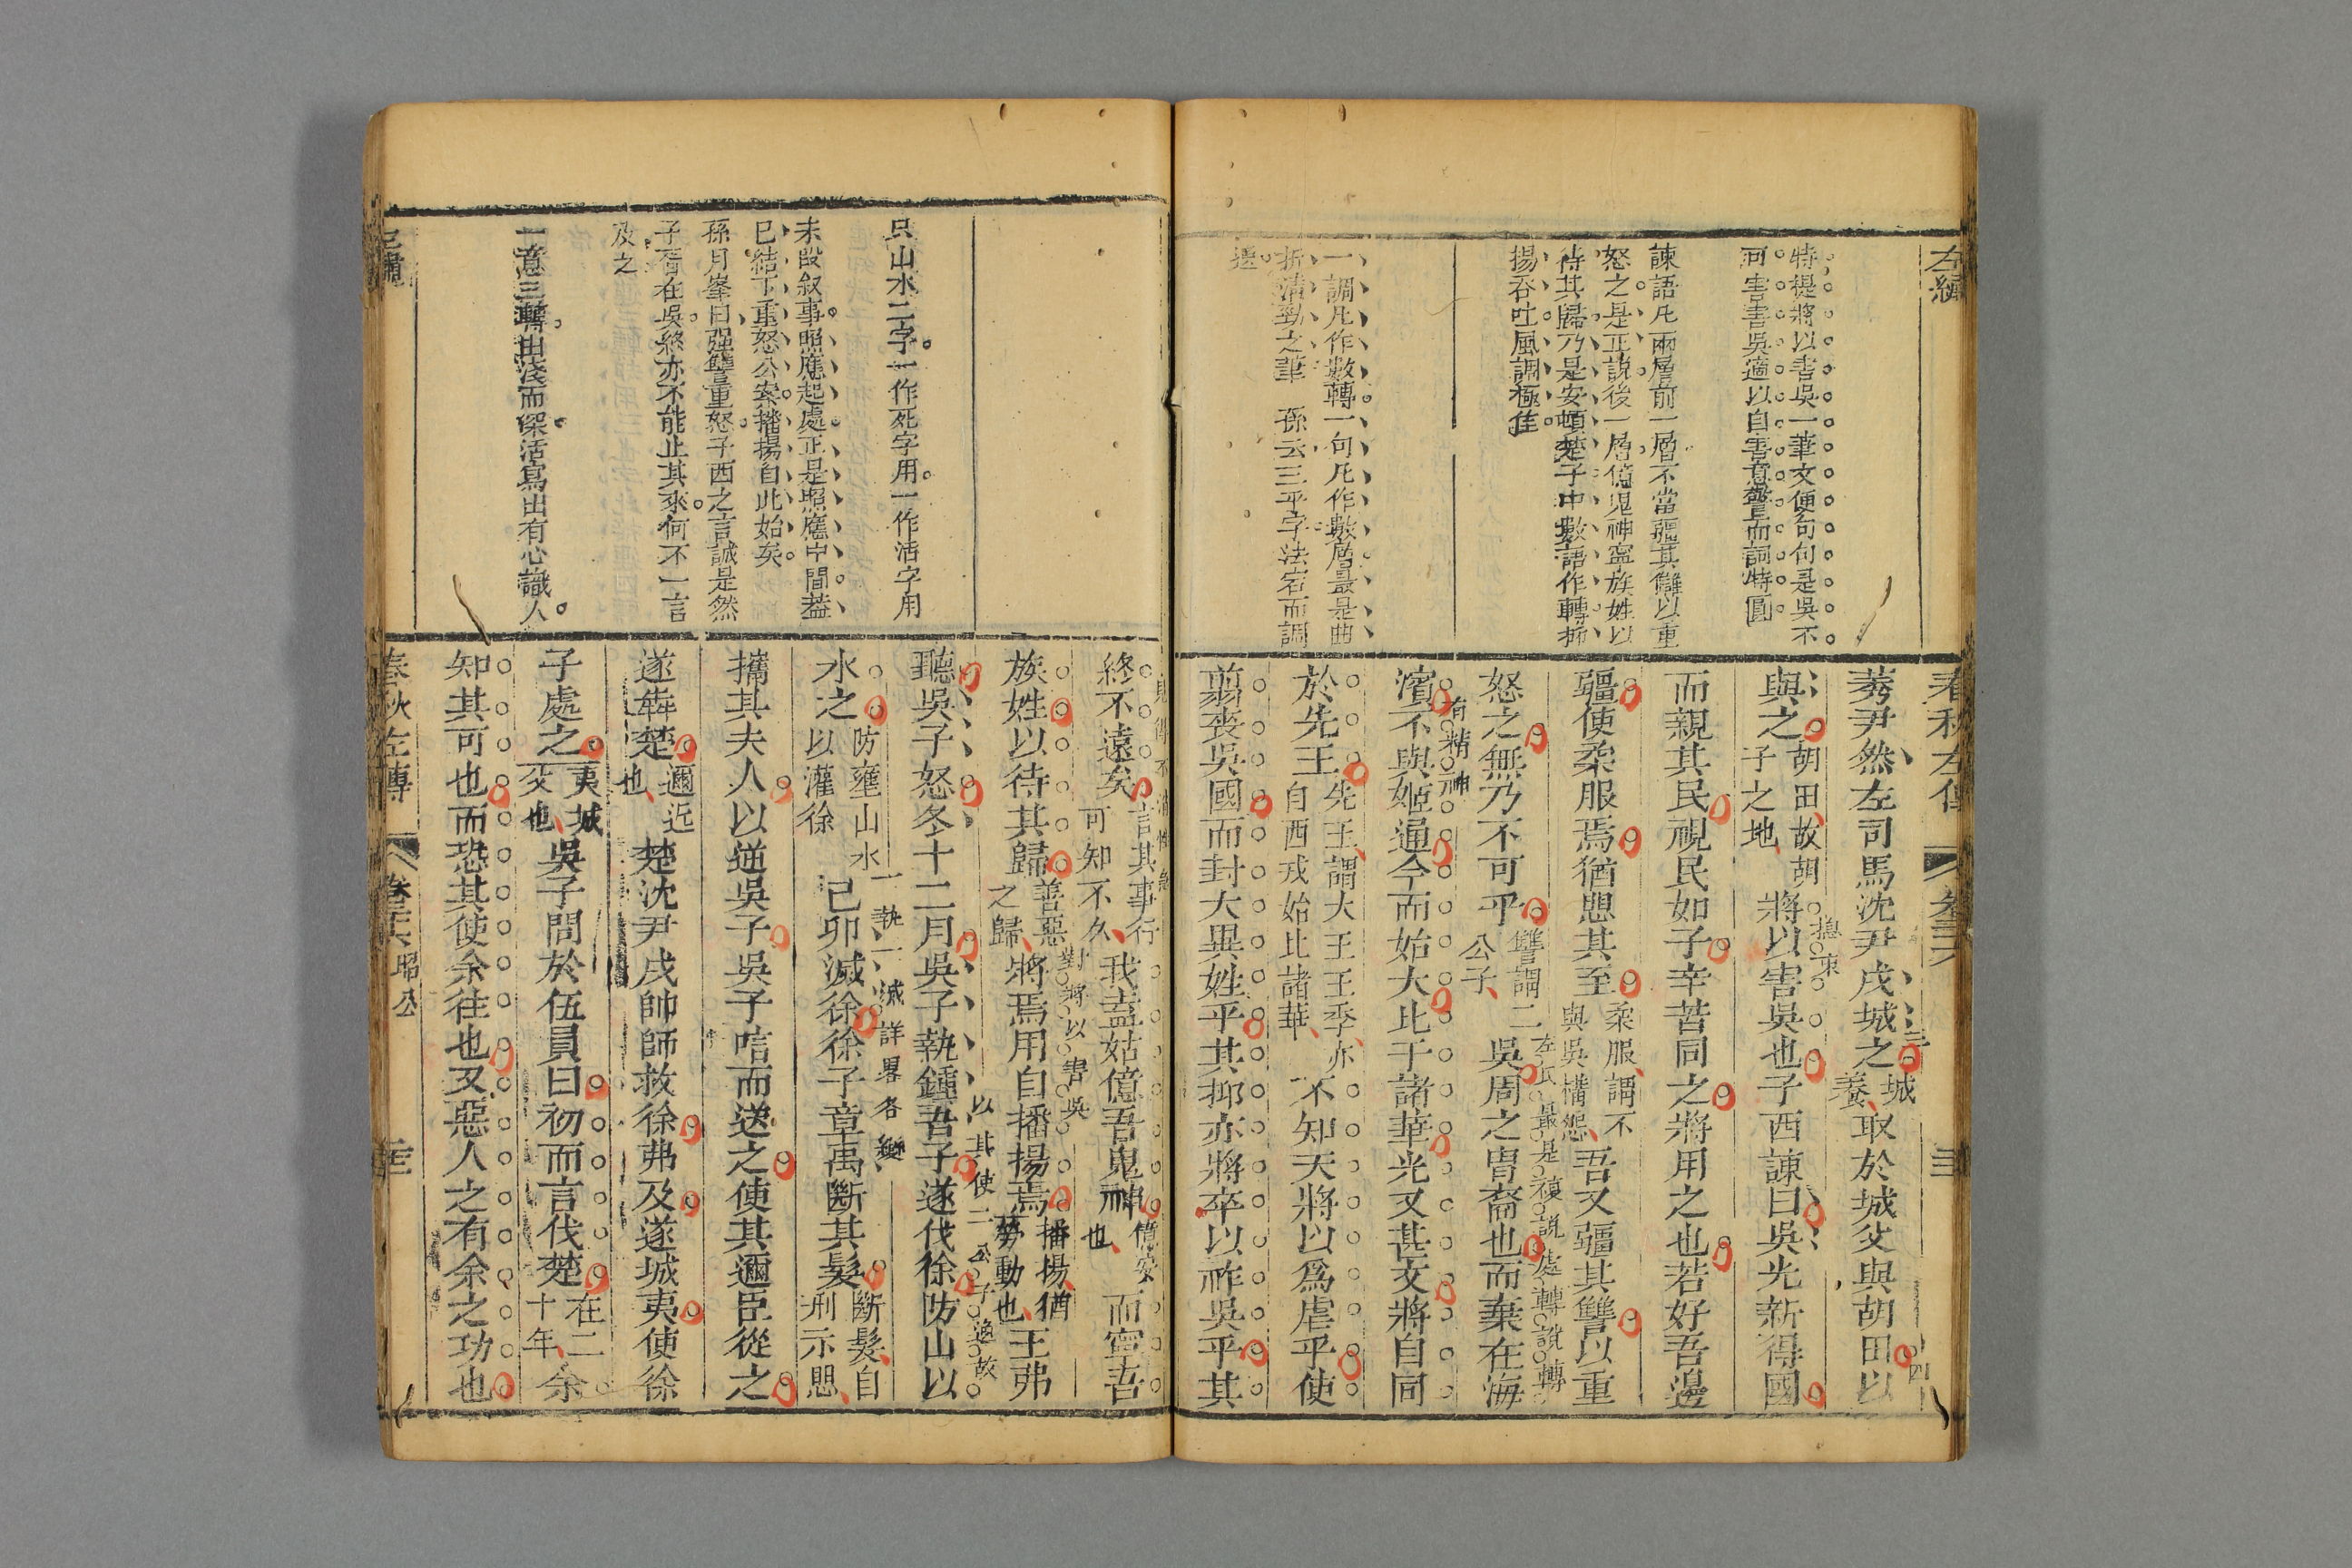 左繡
特提將以害吳一筆文便句句是吳不
可害害吳適以自害意警而詞特圓
諫語凡兩層前一層不當疆其讎以重
怒之是正説後一層億鬼神寧族姓以
待其歸乃是安頓楚子中數語作轉折
揚吞吐風調極佳
一調凡作數轉一句凡作數層最是曲
折清勁之筆　孫云三乎字法宕而調
逸
春秋左傳
莠尹然左司馬沈尹戌城之城養取於城父與胡田以
與之胡田故胡子之地將以害吳也子西諫曰吳光新得國
而親其民視民如子辛苦同之將用之也若好吾邊
疆使柔服焉猶懼其至柔服謂不與吳構怨吾又疆其讐以重
怒之無乃不可乎讐謂二公子吳周之冑裔也而棄在海
濱不與姬通今而始大比于諸華光又甚文將自同
於先王先王謂大王王季亦自西戎始比諸華不知天將以爲虐乎使
翦喪吳國而封大異姓乎其抑亦將卒以祚吳乎其
總束
左氏最是複説處轉説轉
有精神
只山水二字一作死字用一作活字用
末段叙事照應起處正是照應中間蓋
已結下重怒公案播揚自此始矣
孫月峯曰强讐重怒子西之言誠是然
子胥在吳終亦不能止其來何不一言
及之
一意三轉由淺而深活寫出有心識人
終不遠矣言其事行可知不久我盍姑億吾鬼神億安也而寧吾
族姓以待其歸善惡之歸將焉用自播揚焉播揚猶勞動也王弗
聽吳子怒冬十二月吳子執鍾吾子遂伐徐防山以
水之防壅山水以灌徐己卯滅徐徐子章禹斷其髮斷髮自刑示懼
攜其夫人以逆吳子吳子唁而送之使其邇臣從之
遂奔楚邇近也楚沈尹戌帥師救徐弗及遂城夷使徐
子處之夷城父也吳子問於伍員曰初而言伐楚在二十年余
知其可也而恐其使余往也又惡人之有余之功也
對將以害吳
以其使二公子逸故
一執一滅詳畧各變
春秋左傳
卷二十六昭公